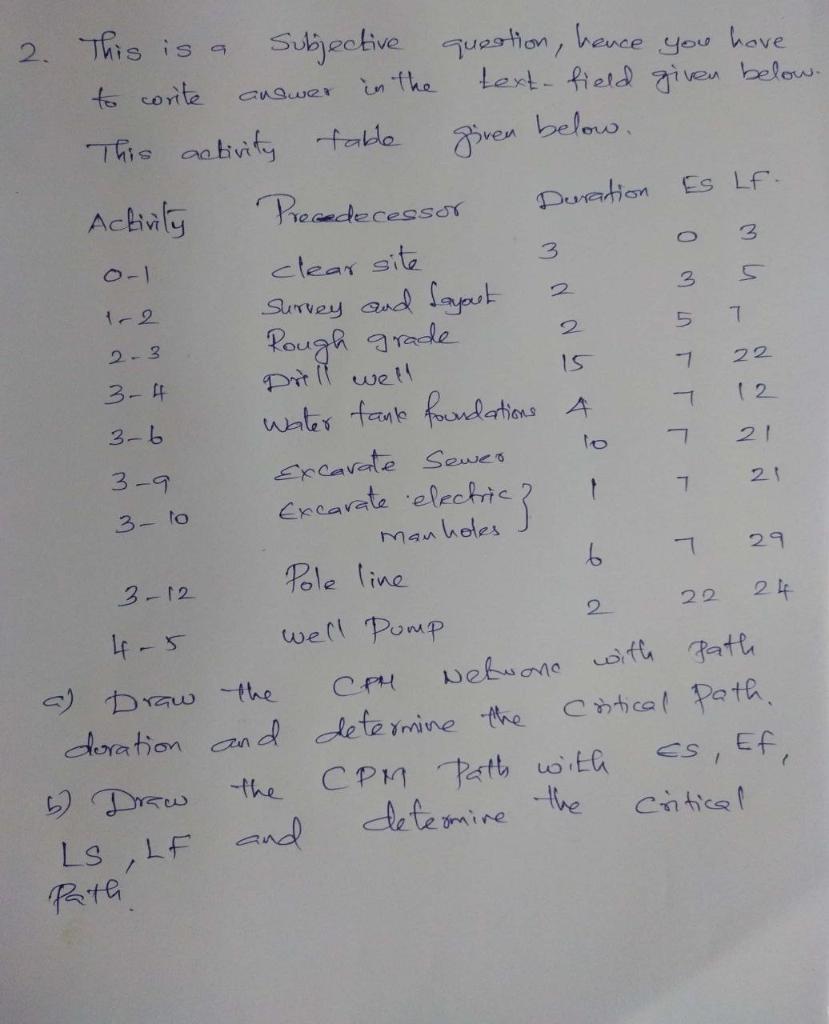 2. This is a Subjective question, hence you have
to write answer in the text-field given below.
This activity table given below.
Activity Precedecessor Duration ES LF.
0-1 clear site 3 0 3
1-2 Survey and layout 2 3 5
2-3 Rough grade 2 5 7
3-4 Drill well 15 7 22
3-6 Water tank foundations 4 7 12
3-9 Excavate Sewer 10 7 21
3-10 Excavate electric } 1 7 21
manholes
3-12 Pole line 6 7 29
4-5 well Pump 2 22 24
a) Draw the CPM Network with Path
duration and determine the Critical Path.
b) Draw the CPM Path with ES, EF,
LS, LF and determine the Critical
Path.